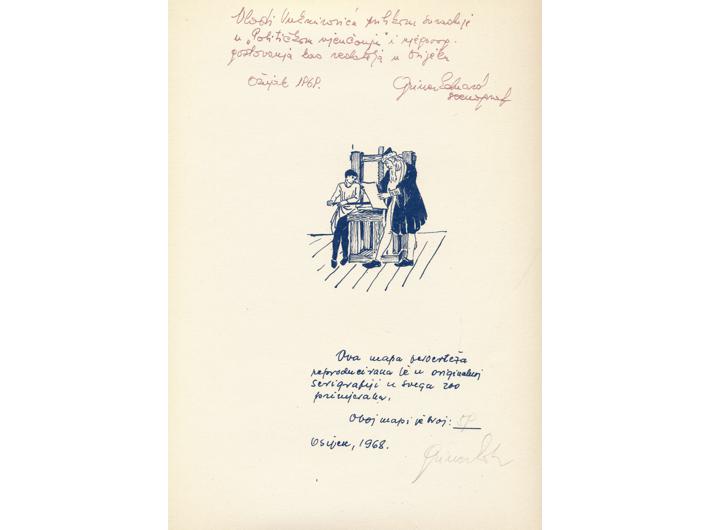 Vlasti Vukmirovića prilikom suradnje
u „Političkom vjenčanju" i njegovog
gostovanja kao redatelja u Osijeku
Osijek 1968.
Griner Eduard
scenograf
Ova mapa perocrteža
reproducirana je u originalnoj
serigrafiji u svega 200
primjeraka.
Ovoj mapi je broj:
Osijek, 1968.